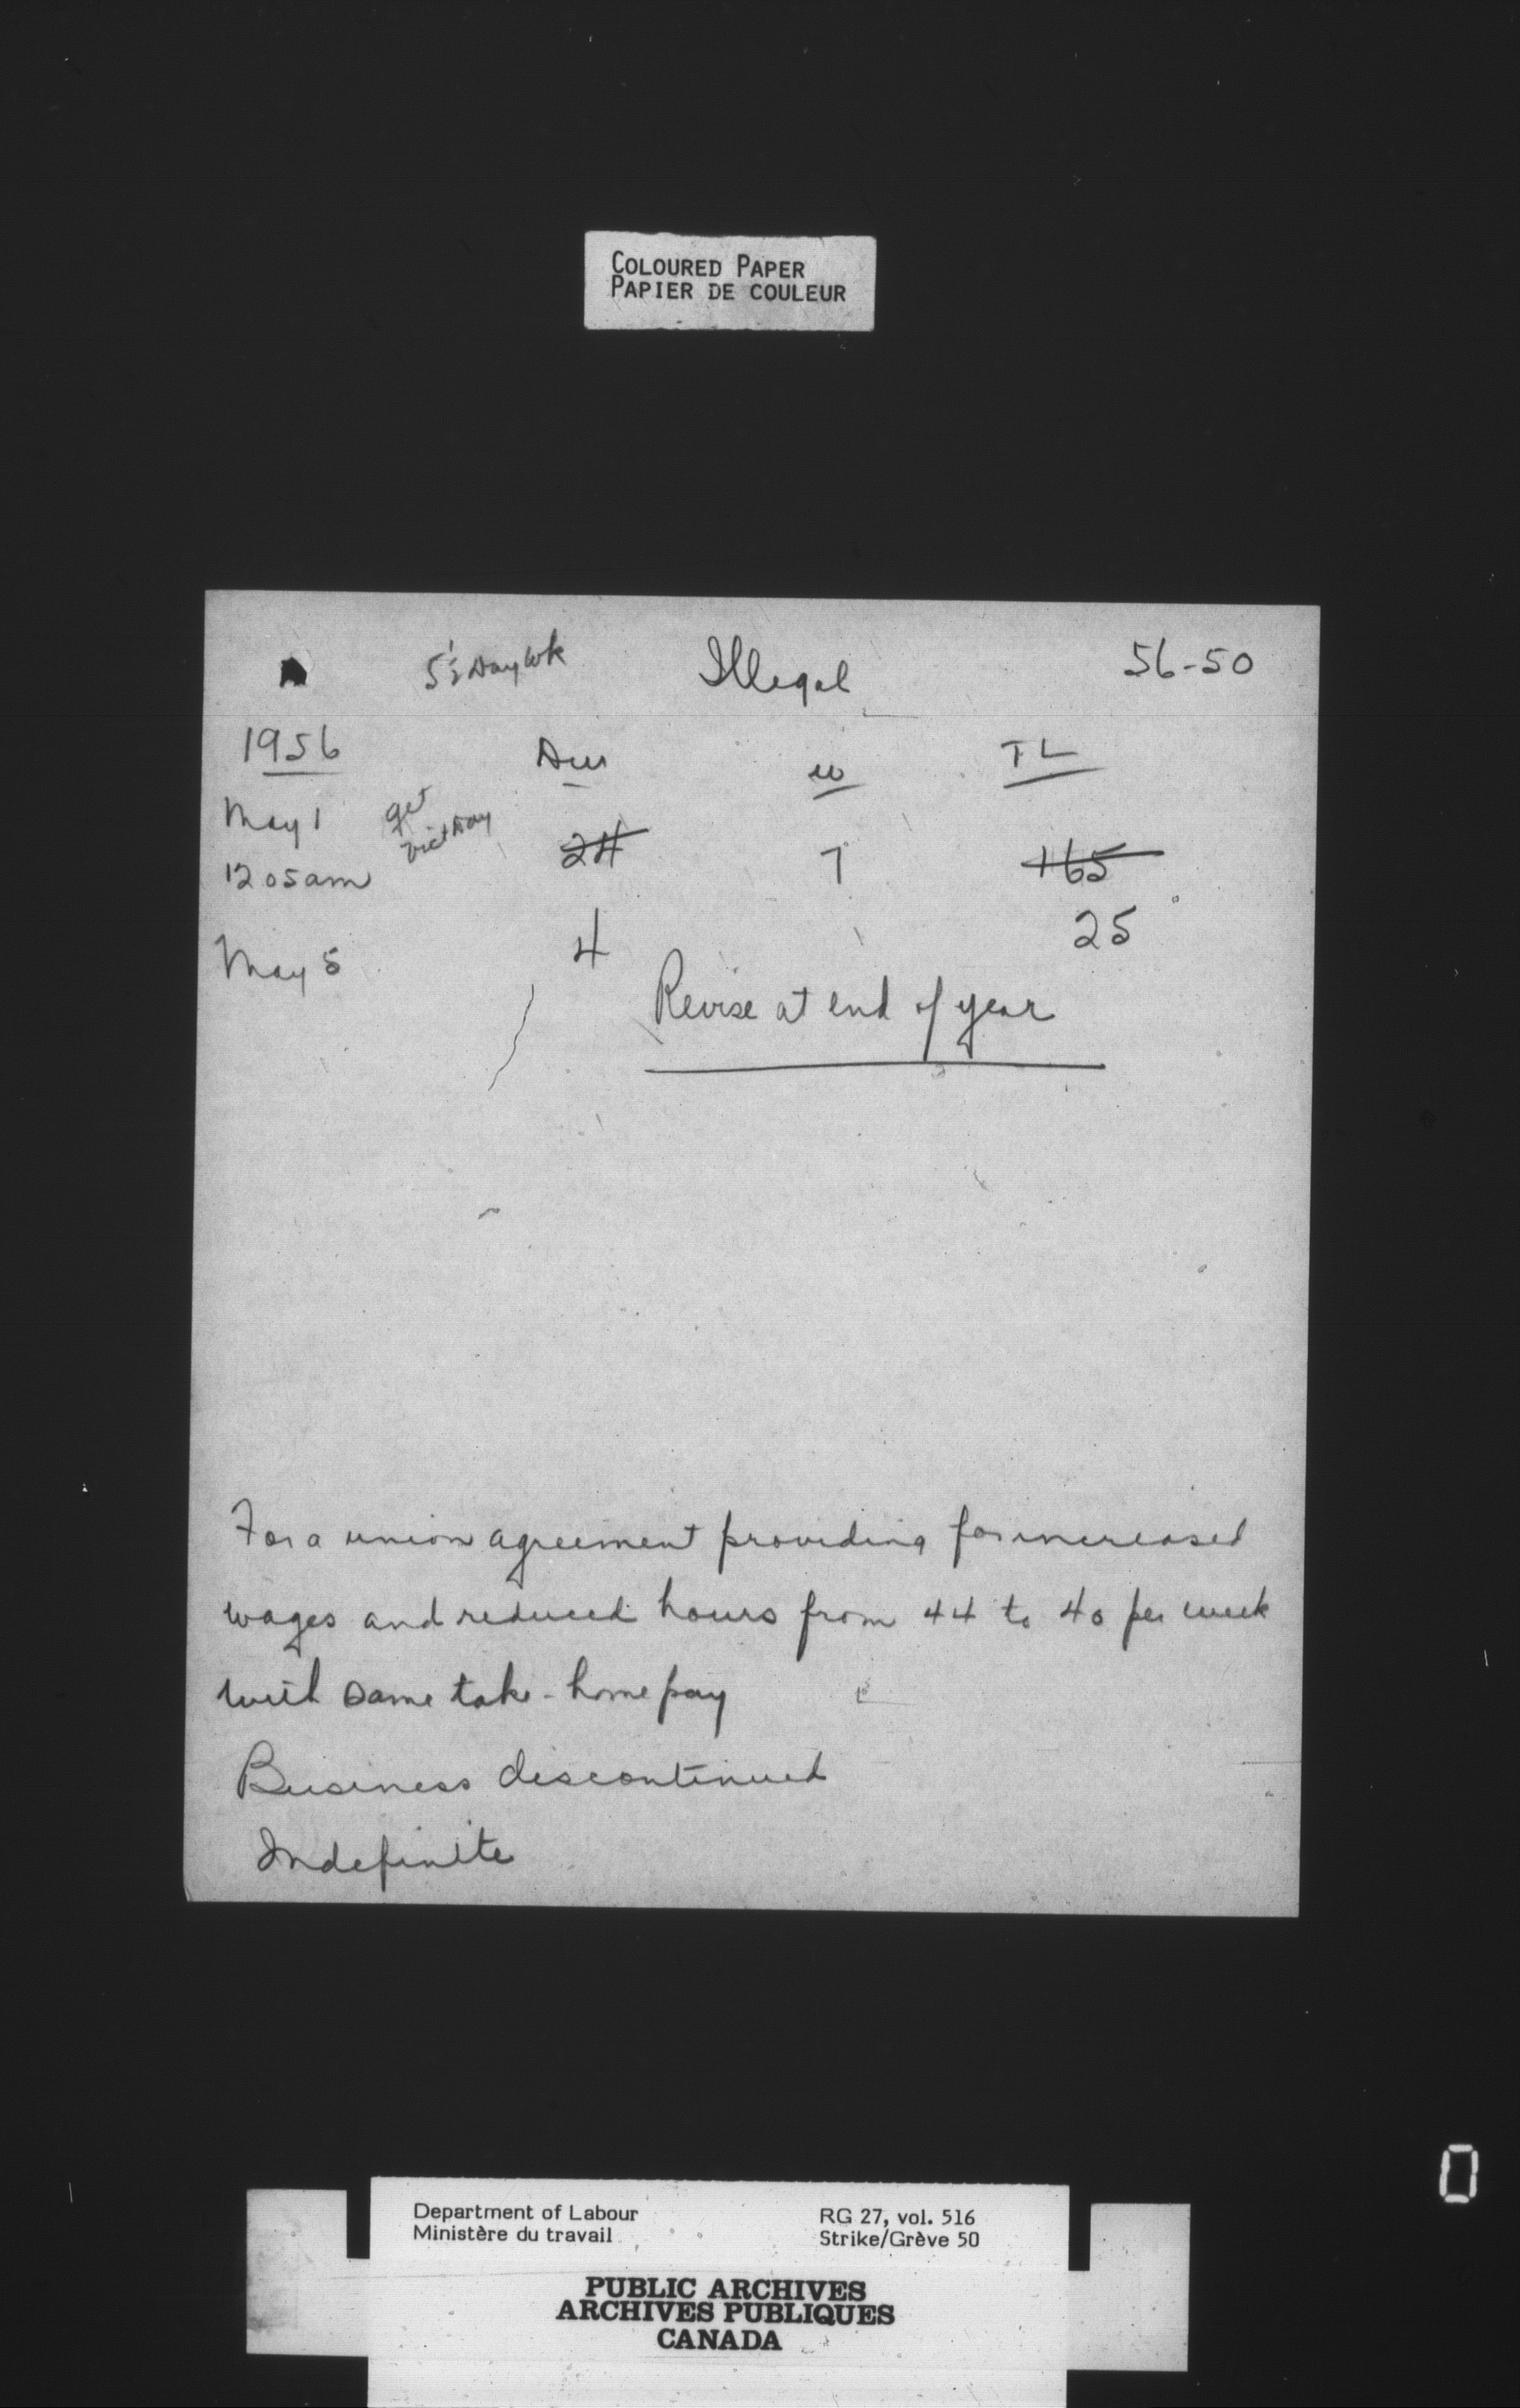 COLOURED PAPER
PAPIER DE COULEUR
5½ Day Wk Illegal 56-50
1956 Dur W TL
May 1 get Vict Day 24 7 165
12 05 am
May 5 4 25
Revise at end of year
For a union agreement providing for increased
wages and reduced hours from 44 to 40 per week
with same take-home pay
Business discontinued
Indefinite
0
Department of Labour RG 27, vol. 516
Ministère du travail Strike/Grève 50
PUBLIC ARCHIVES
ARCHIVES PUBLIQUES
CANADA